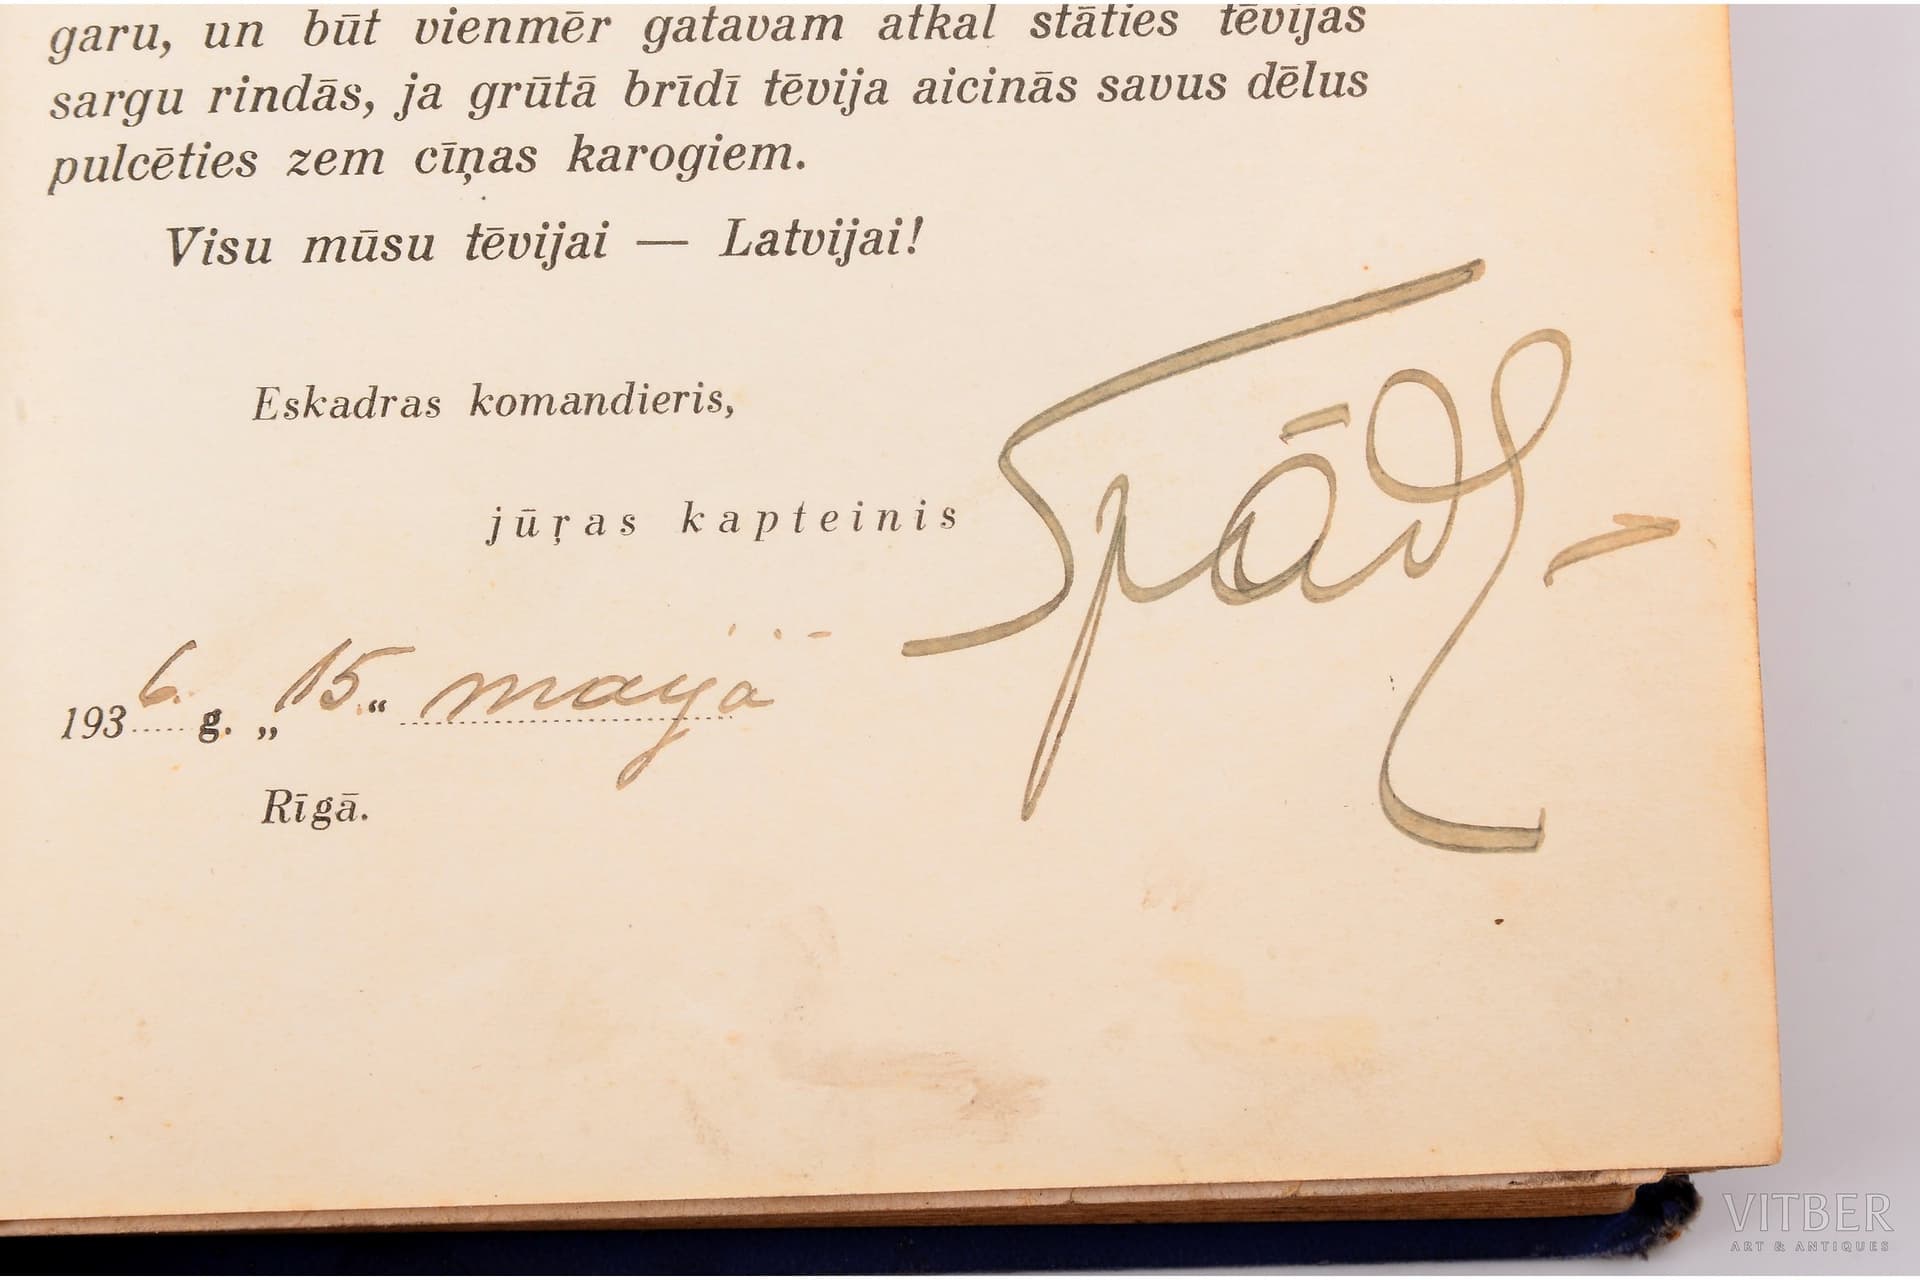 garu, un būt vienmēr gatavam atkal stāties tēvijas
sargu rindās, ja grūtā brīdī tēvija aicinās savus dēlus
pulcēties zem cīņas karogiem.
Visu mūsu tēvijai — Latvijai!
Eskadras komandieris,
jūŗas kapteinis Spāde
1936. g. „15.“ maijā
Rīgā.
VITBER
ART & ANTIQUES